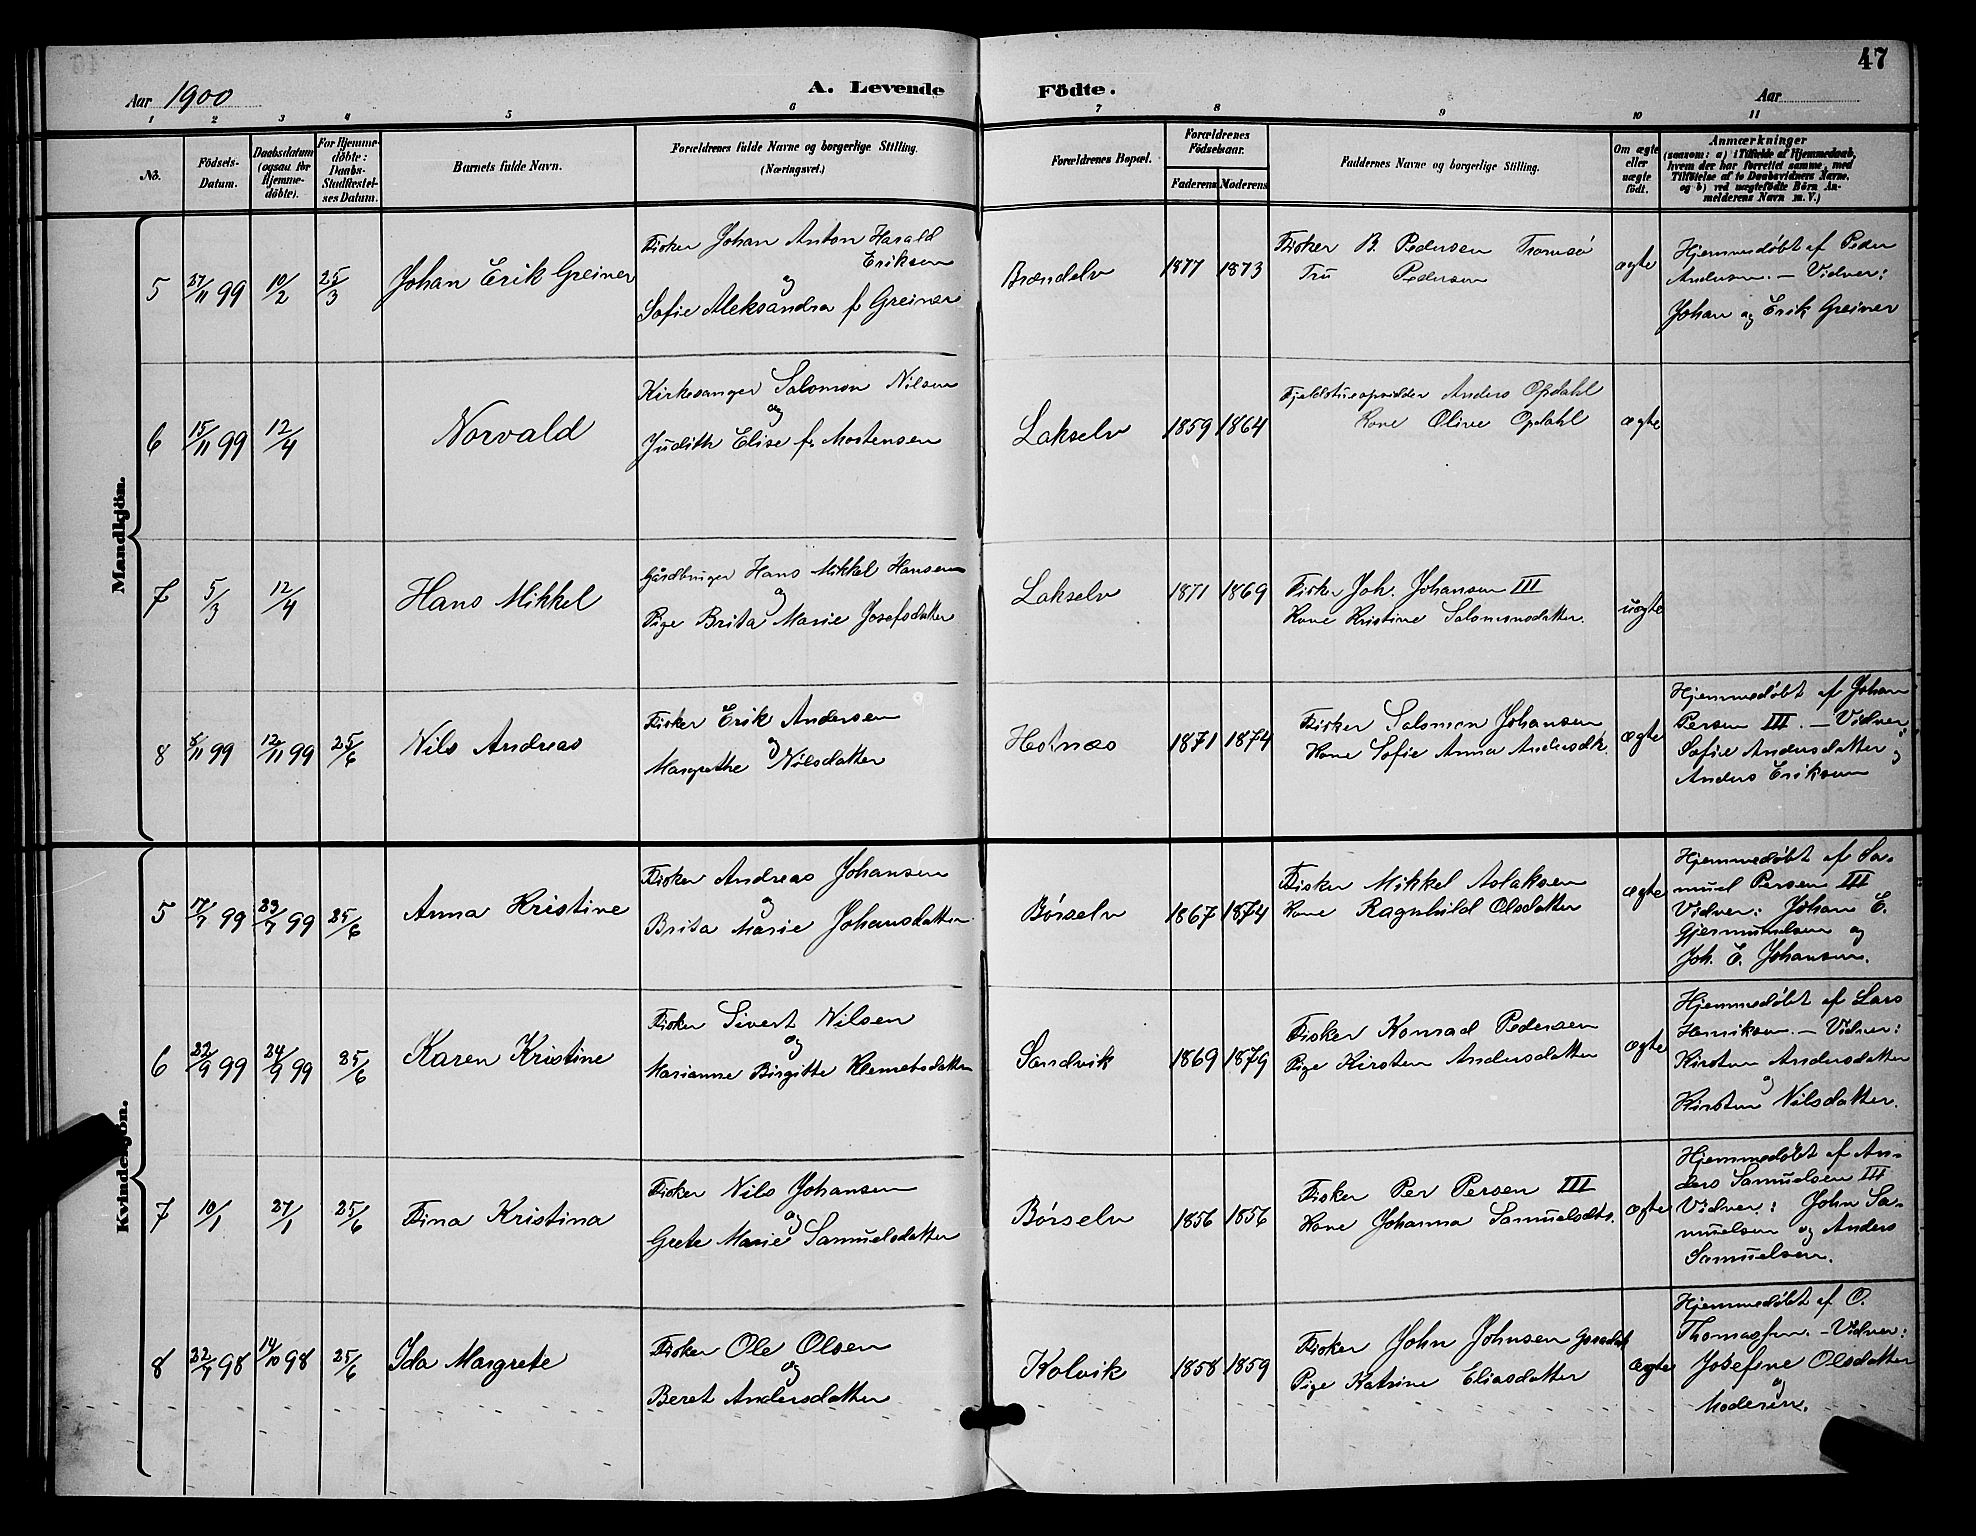 47
Aar 1900
A. Levende Födte.
Aar
1 2 3 4 5 6 7 8 9 10 11
No.
Födsels-Datum.
Daabsdatum (ogsaa for Hjemme-döbte).
For Hjemme-döbte: Daabs-Stadfæstel-ses Datum.
Barnets fulde Navn.
Forældrenes fulde Navne og borgerlige Stilling. (Næringsvei.)
Forældrenes Bopæl.
Forældrenes Födselsaar.
Faderens Moderens
Faddernes Navne og borgerlige Stilling.
Om ægte eller uægte født.
Anmærkninger
(saasom: a) i Tilfælde af Hjemmedaab,
hvem der har forrettet samme, med
Tilföielse af to Daabsvidners Navne,
og b) ved uægtefödte Börn An-
melderens Navn m. V.)
Mandkjön.
5 27/11 99 10/2 25/3
Johan Erik Greiner
Fisker Johan Anton Harald
Eriksen
og
Sofie Aleksandra f. Greiner
Brændelv 1877 1873
Fisker B. Pedersen Tromsø
Fru Pedersen
ægte
Hjemmedøbt af Peder
Andersen. – Vidner:
Johan og Erik Greiner
6 15/11 99 12/4
Norvald
Kirkesanger Salomon Nilsen
og
Judith Elise f. Mortensen
Lakselv 1859 1864
Fjeldstueopsidder Anders Opdahl
Kone Olive Opdahl
ægte
7 5/3 12/4
Hans Mikkel
Gårdbruger Hans Mikkel Hansen
og
Pige Brita Marie Josefsdatter
Lakselv 1871 1869
Fisker Joh. Johansen III
Kone Kristine Salomonsdatter.
uægte
8 5/11 99 12/11 99 25/6
Nils Andreas
Fisker Erik Andersen
og
Margrethe Nilsdatter
Hotnæs 1871 1874
Fisker Salomon Johansen
Kone Sofie Anna Andersdtr.
ægte
Hjemmedøbt af Johan
Persen III. – Vidner:
Sofie Andersdatter og
Anders Eriksen
Kvindekjön.
5 17/7 99 23/7 99 25/6
Anna Kristine
Fisker Andreas Johansen
og
Brita Marie Johansdatter
Børselv 1867 1874
Fisker Mikkel Aslaksen
Kone Ragnhild Olsdatter
ægte
Hjemmedøbt af Sa-
muel Persen III
Vidner: Johan E.
Gjermundsen og
Joh. E. Johansen.
6 22/9 99 24/9 99 25/6
Karen Kristine
Fisker Sivert Nilsen
og
Marianne Birgitte Klemetsdatter
Sandvik 1869 1879
Fisker Konrad Pedersen
Pige Kirsten Andersdatter
ægte
Hjemmedøbt af Lars
Henriksen. – Vidner:
Kirsten Andersdatter
og
Kirsten Nilsdatter.
7 10/1 27/1 25/6
Fina Kristina
Fisker Nils Johansen
og
Grete Marie Samuelsdatter
Børselv 1856 1856
Fisker Per Persen III
Kone Johanna Samuelsdtr.
ægte
Hjemmedøbt af An-
ders Samuelsen III
Vidner: John Sa-
muelsen og Anders
Samuelsen.
8 22/7 98 14/10 98 25/6
Ida Margrete
Fisker Ole Olsen
og
Beret Andersdatter
Kolvik 1858 1859
Fisker John Johnsen
Pige Katrine Eliasdatter
ægte
Hjemmedøbt af O.
Thomassen. – Vidner:
Josefine Olsdatter
og
Moderen.